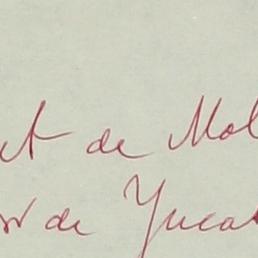 et de Mol
de Yuca